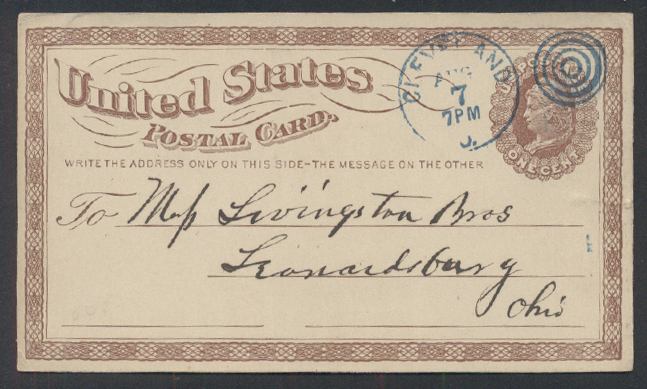 United States
POSTAL CARD.
CLEVELAND
AUG
7
7PM
O.
U.S. POSTAGE
ONE CENT
WRITE THE ADDRESS ONLY ON THIS SIDE-THE MESSAGE ON THE OTHER
To Mess Livingston Bros
Leonardsburg
Ohio